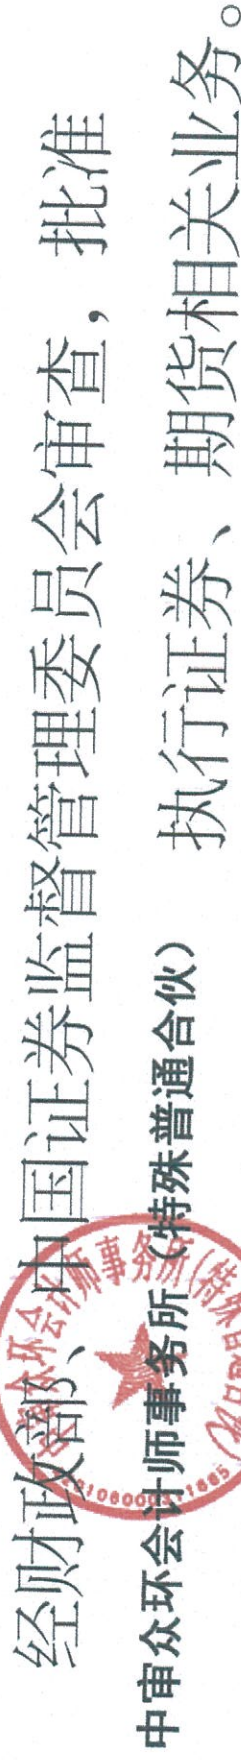 经财政部、中国证券监督管理委员会审查，批准
中审众环会计师事务所（特殊普通合伙） 执行证券、期货相关业务。